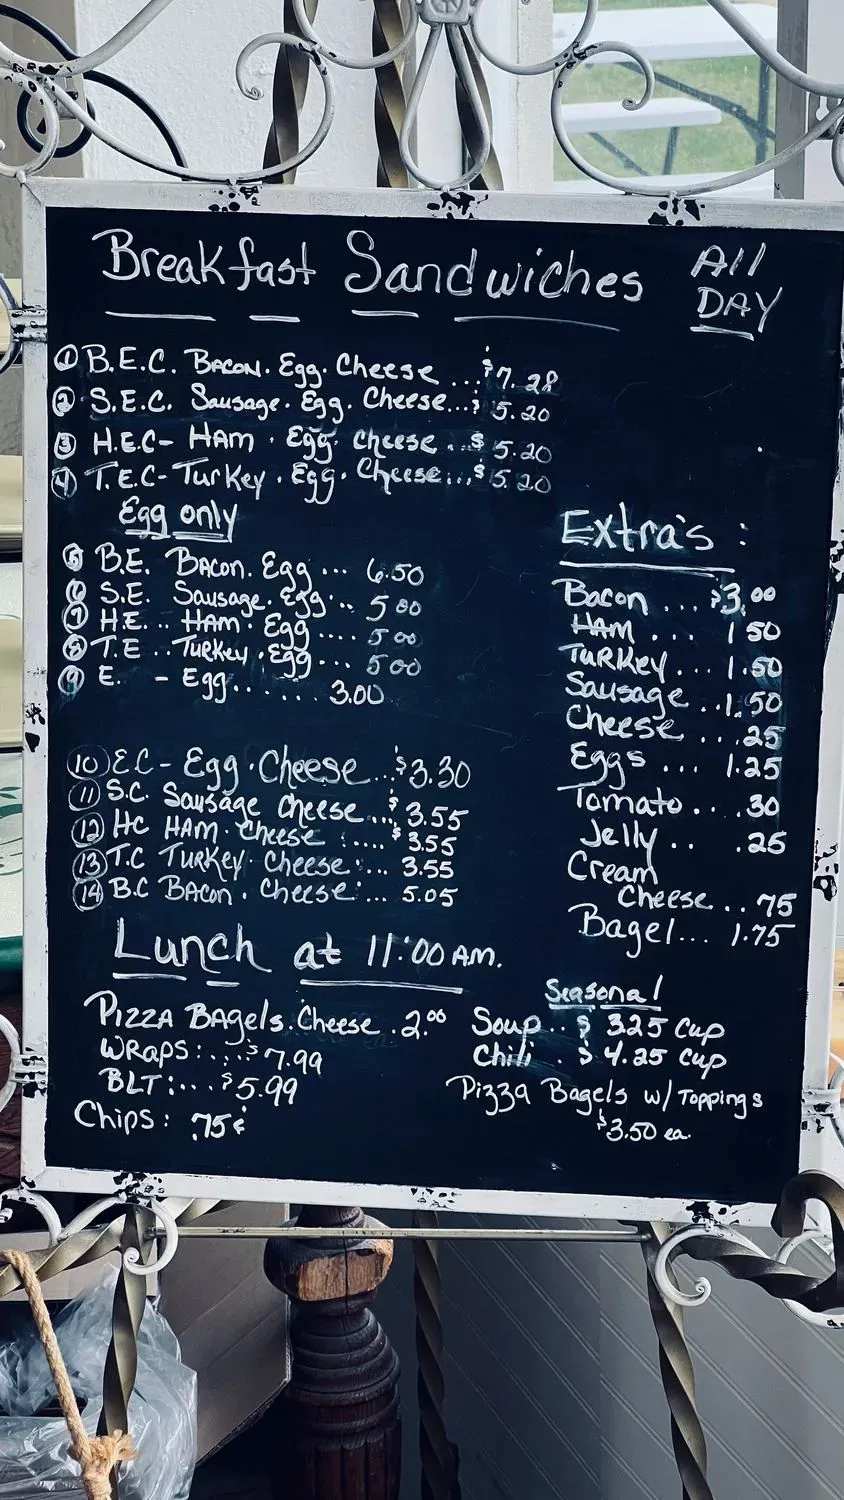 Breakfast Sandwiches All DAY
① B.E.C. Bacon. Egg. Cheese ... $7.28
② S.E.C. Sausage. Egg. Cheese... $ 5.20
③ H.E.C- HAM . Egg. cheese ... $ 5.20
④ T.E.C- Turkey . Egg. Cheese... $ 5.20
Egg only
⑤ B.E. Bacon. Egg ... 6.50
⑥ S.E. Sausage. Egg ... 5 00
⑦ H.E... HAM . Egg .... 5 00
⑧ T.E .. Turkey . Egg ... 5 00
⑨ E. - Egg....... 3.00
⑩ E.C - Egg . Cheese ... $3.30
⑪ S.C. Sausage Cheese ... $ 3.55
⑫ HC HAM . cheese ..... $ 3.55
⑬ T.C Turkey . Cheese ... 3.55
⑭ B.C Bacon . Cheese ... 5.05
Extra's :
Bacon ... $3.00
HAM ... 1 50
Turkey... 1.50
Sausage .. 1.50
Cheese ... .25
Eggs ... 1.25
Tomato ... .30
Jelly .. .25
Cream
Cheese .. .75
Bagel... 1.75
Lunch at 11:00 AM.
Pizza Bagels. Cheese . 2.00
Wraps: ... $7.99
BLT: ... $5.99
Chips: .75¢
Seasonal
Soup .. $ 3.25 cup
Chili .. $ 4.25 cup
Pizza Bagels w/ Toppings
$3.50 ea.